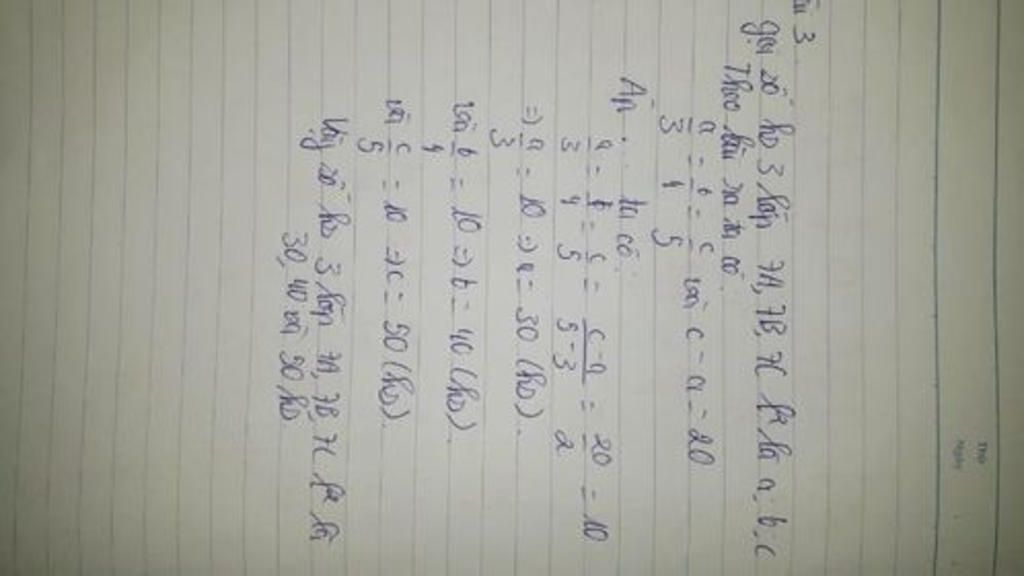 Câu 3
Gọi số hs 3 lớp 7A, 7B, 7C lần lượt là a, b, c
Theo bài ra ta có
a/3 = b/4 = c/5 và c - a = 20
ta có:
a/3 = b/4 = c/5 = c-a/5-3 = 20/2 = 10
=> a/3 = 10 => a = 30 (hs).
và b/4 = 10 => b = 40 (hs)
và c/5 = 10 => c = 50 (hs).
Vậy số hs 3 lớp 7A, 7B, 7C là
30, 40 và 50 hs